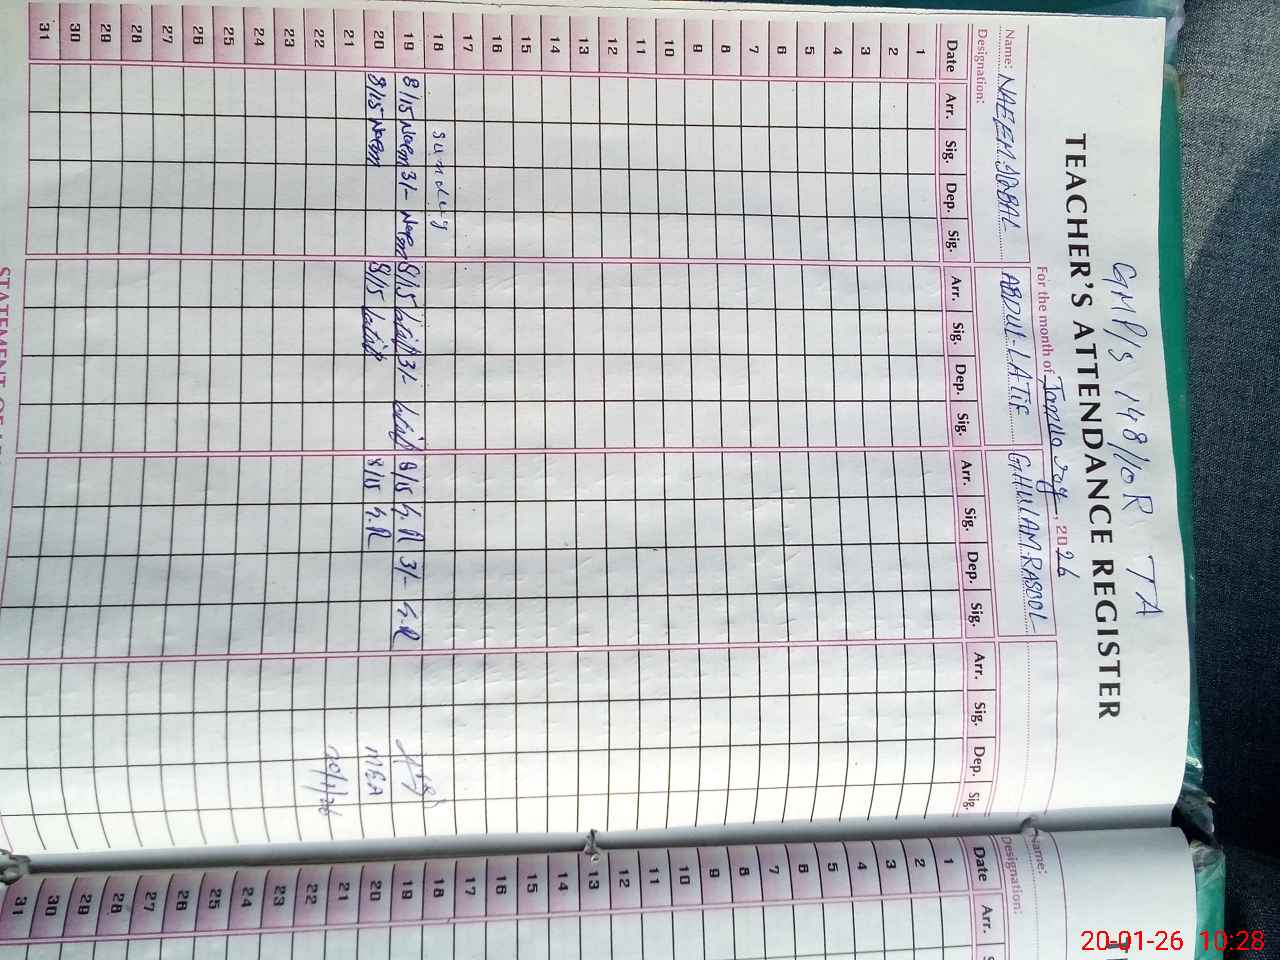 GMP/S 148/10R TA
TEACHER'S ATTENDANCE REGISTER
For the month of January, 2026
Name: NAEEM IQBAL ABDUL LATIF GHULAM RASOOL
Designation:
Date Arr. Sig. Dep. Sig. Arr. Sig. Dep. Sig. Arr. Sig. Dep. Sig. Arr. Sig. Dep. Sig.
1
2
3
4
5
6
7
8
9
10
11
12
13
14
15
16
17
18 Sunday
19 8/15 Naeem 3/- Naeem 8/15 Latif 3/- Latif 8/15 G.R 3/- G.R
20 8/15 Naeem 8/15 Latif 8/15 G.R MEA
21
22 20/1/26
23
24
25
26
27
28
29
30
31
Name:
Designation:
Date Arr.
1
2
3
4
5
6
7
8
9
10
11
12
13
14
15
16
17
18
19
20
21
22
23
24
25
26
27
28
29
30
31
20-01-26 10:28